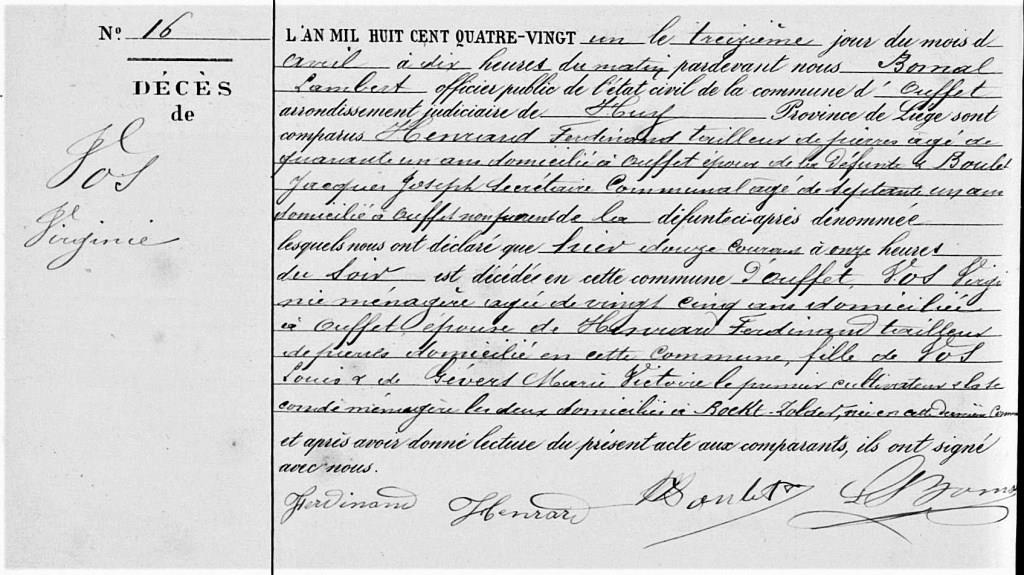 Nº 16
DÉCÈS
de
Vos
Virginie
L'AN MIL HUIT CENT QUATRE-VINGT un le treizième jour du mois d
Avril à dix heures du matin pardevant nous Bomal
Lambert officier public de l'état civil de la commune d' Ouffet
arrondissement judiciaire de Huy Province de Liège sont
comparus Henrard Ferdinand tailleur de pierres agé de
quarante un ans domicilié à Ouffet époux de la Défunte & Boulet
Jacques Joseph Secrétaire Communal agé de Septante un ans
domicilié à Ouffet non parent de la défunte ci-après dénommée
lesquels nous ont déclaré que hier douze courant à onze heures
du Soir est décédée en cette commune D'ouffet, Vos Virgi
nie ménagère agée de vingt cinq ans domiciliée
à Ouffet épouse de Henrard Ferdinand tailleur
de pierres domicilié en cette Commune, fille de Vos
Louis & de Gévers Marie Victoire le premier cultivateur & la se
conde ménagère les deux domiciliés à Boekt-Zolder, née en cette dernière Comm
et après avoir donné lecture du présent acte aux comparants, ils ont signé
avec nous.
Ferdinand Henrard Boulet LBomal